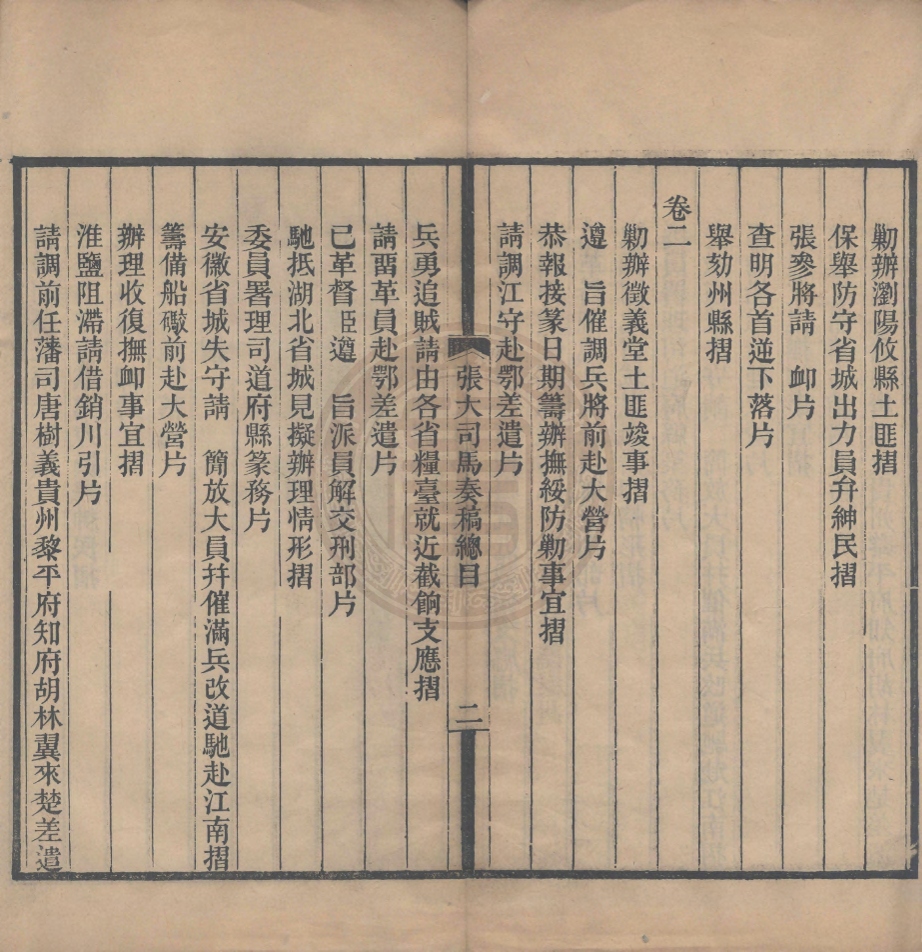 勦辦瀏陽攸縣土匪摺
保舉防守省城出力員弁紳民摺
張參將請　卹片
查明各首逆下落片
舉劾州縣摺
卷二
勦辦徵義堂土匪竣事摺
遵　旨催調兵將前赴大營片
恭報接篆日期籌辦撫綏防勦事宜摺
請調江守赴鄂差遣片
張大司馬奏稿總目　二
兵勇追賊請由各省糧臺就近截餉支應摺
請畱革員赴鄂差遣片
已革督臣遵　旨派員解交刑部片
馳抵湖北省城見擬辦理情形摺
委員署理司道府縣篆務片
安徽省城失守請　簡放大員幷催滿兵改道馳赴江南摺
籌備船礮前赴大營片
辦理收復撫卹事宜摺
淮鹽阻滯請借銷川引片
請調前任藩司唐樹義貴州黎平府知府胡林翼來楚差遣